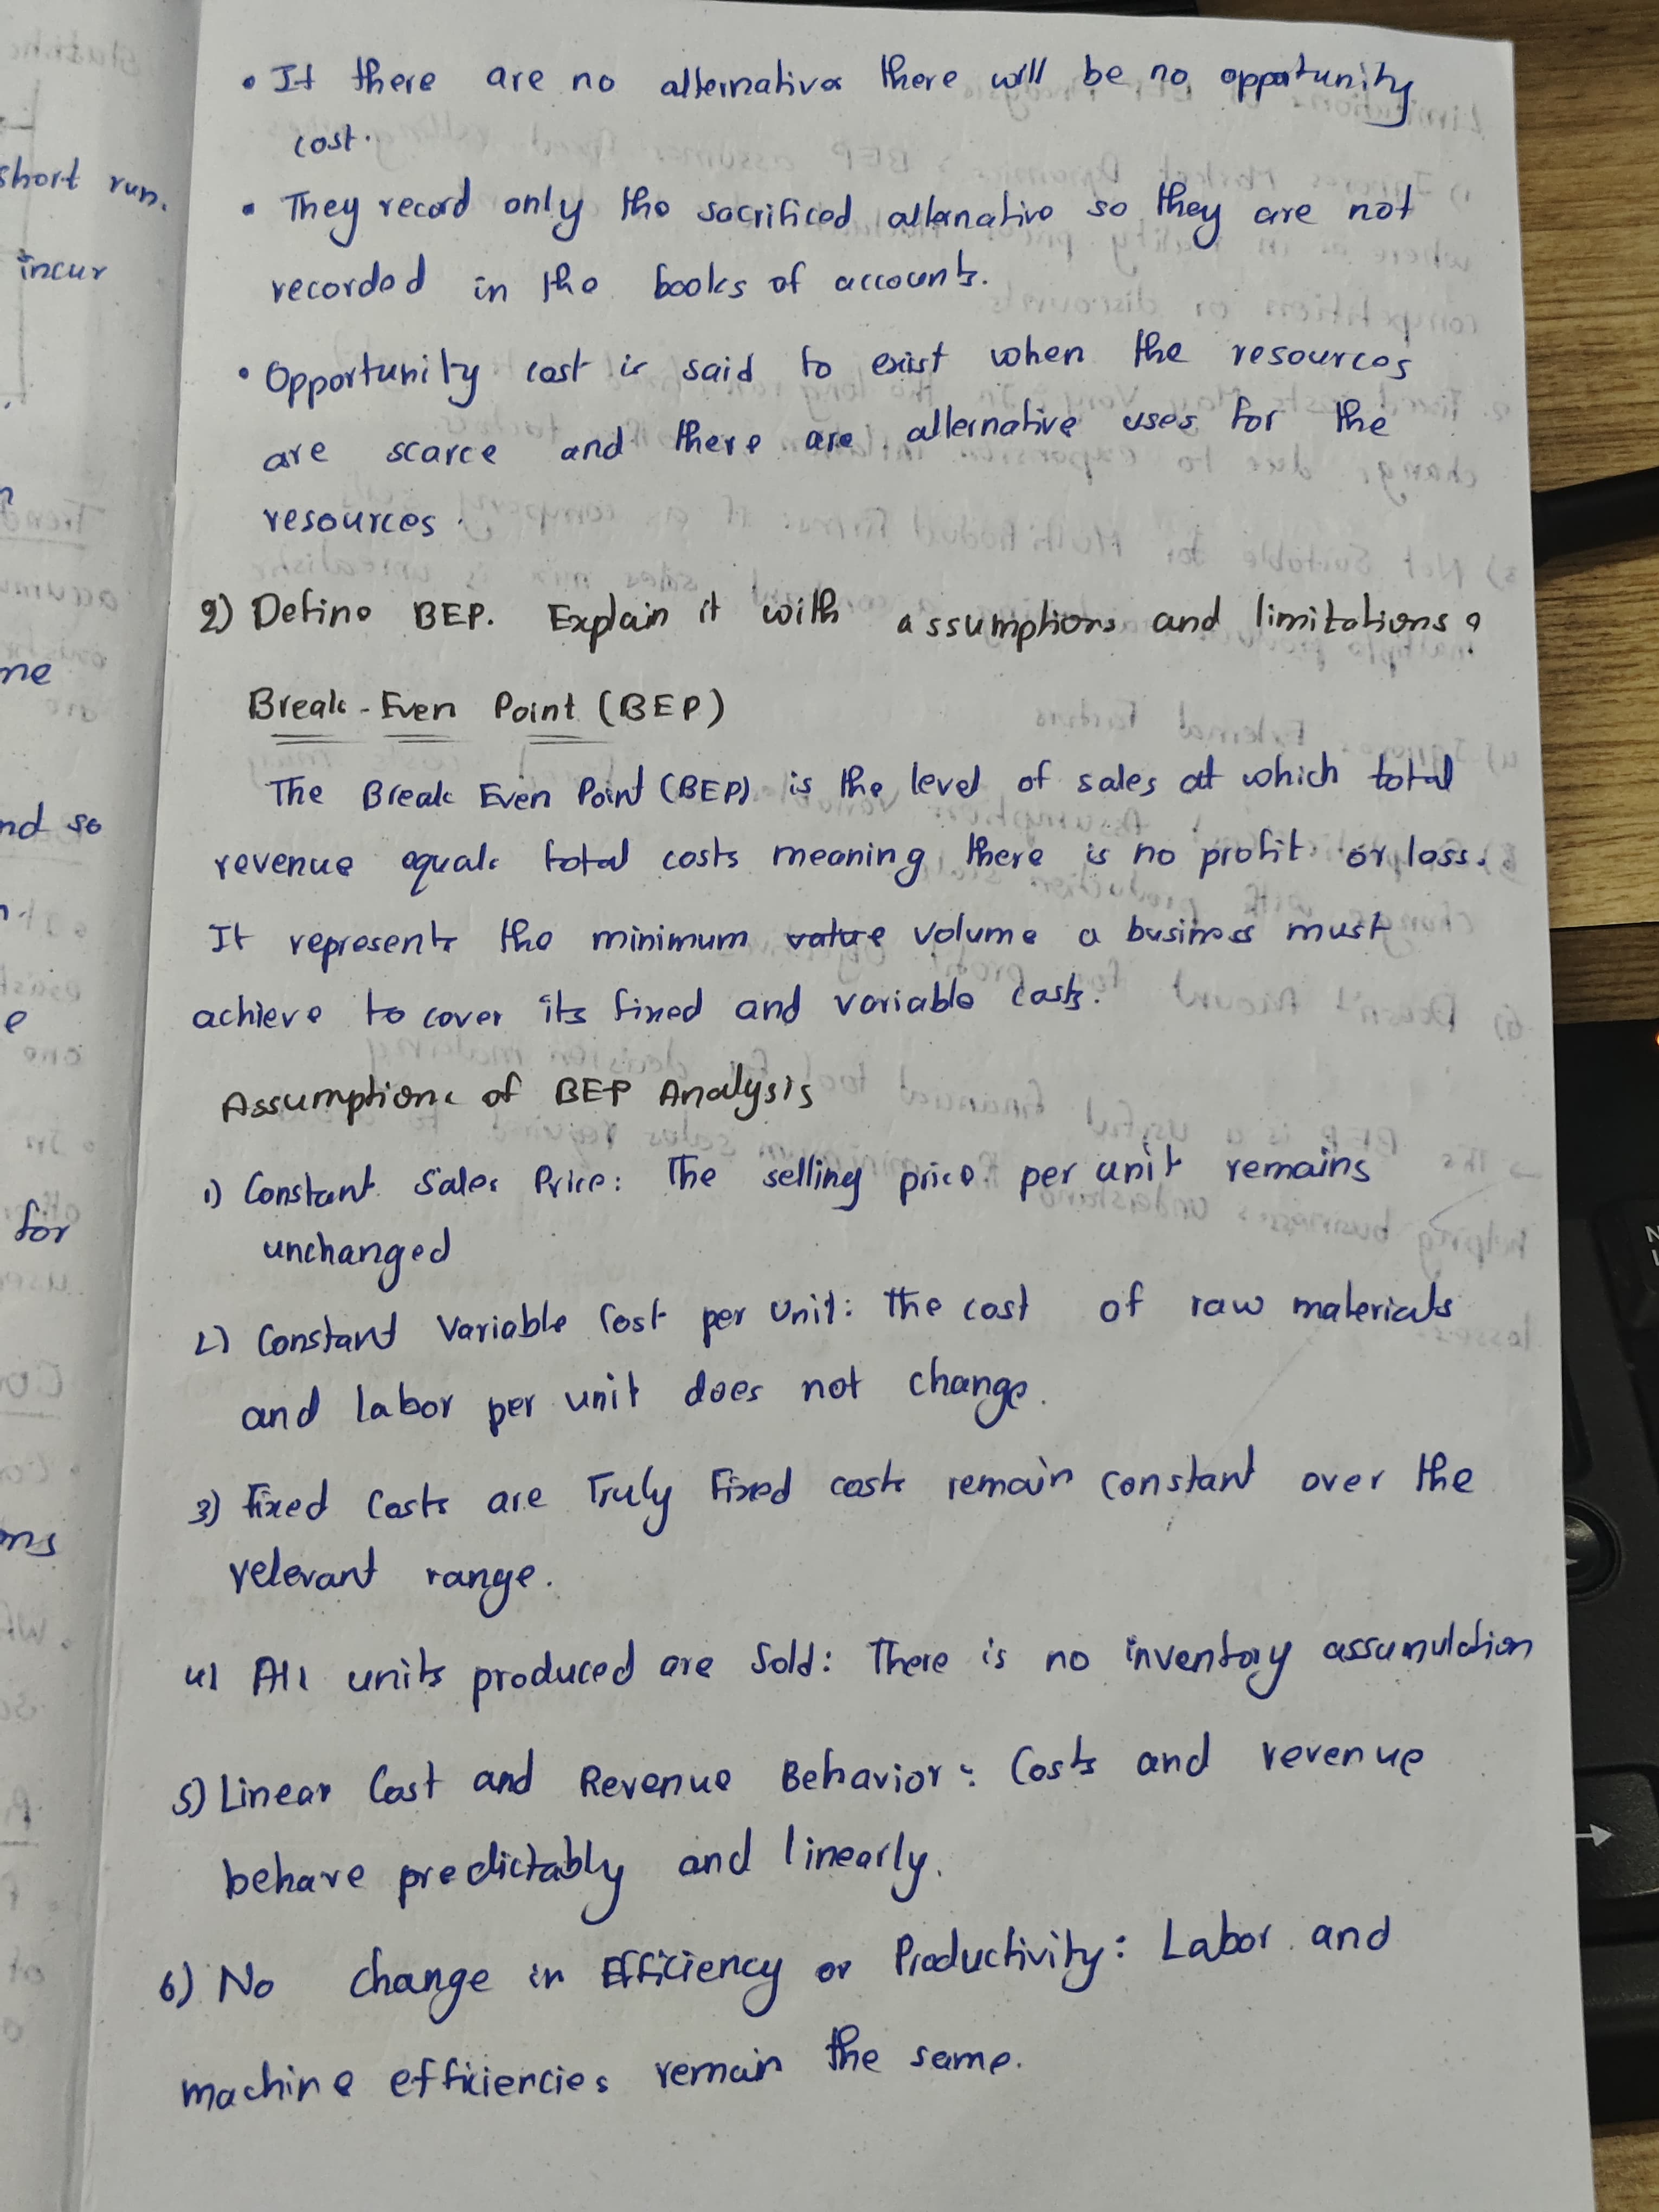 • If there are no alternatives there will be no opportunity
cost.
• They record only the sacrificed alternative so they are not
recorded in the books of accounts.
• Opportunity cost is said to exist when the resources
are scarce and there are alternative uses for the
resources.
2) Define BEP. Explain it with assumptions and limitations?
Break-Even Point (BEP)
The Break Even Point (BEP) is the level of sales at which total
revenue equals total costs meaning there is no profit or loss.
It represents the minimum value volume a business must
achieve to cover its fixed and variable costs.
Assumptions of BEP Analysis
1) Constant Sales Price: The selling price per unit remains
unchanged
2) Constant Variable Cost per Unit: The cost of raw materials
and labor per unit does not change.
3) Fixed Costs are Truly Fixed costs remain constant over the
relevant range.
4) All units produced are Sold: There is no inventory assumulation
5) Linear Cost and Revenue Behavior: Costs and revenue
behave predictably and linearly.
6) No change in Efficiency or Productivity: Labor and
machine efficiencies remain the same.
short run.
incur
me
nd so
for